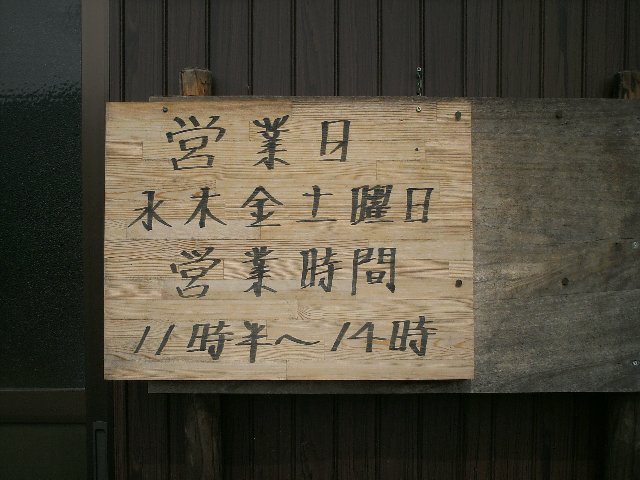 営業日
水木金土曜日
営業時間
11時半～14時